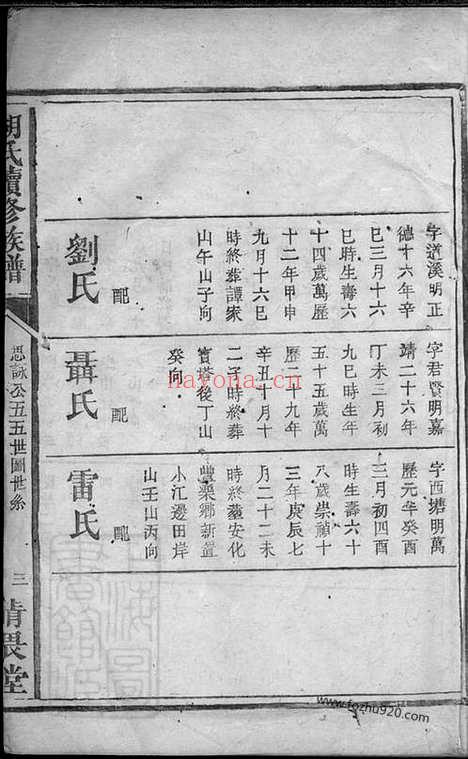 字道溪明正
德十六年辛
巳三月十六
巳時生壽六
十四歲萬歷
十二年甲申
九月十六巳
時終葬譚家
山午山子向
配
劉氏
字君賢明嘉
靖二十六年
丁未三月初
九巳時生年
五十五歲萬
歷二十九年
辛丑十月十
二子時終葬
寶塔後丁山
癸向
配
聶氏
字西塘明萬
歷元年癸酉
三月初四酉
時生壽六十
八歲崇禎十
三年庚辰七
月二十二未
時終葬安化
豐樂鄉新置
小江邊田岸
山壬山丙向
配
雷氏
胡氏續修族譜
思詠公五五世圖世系
三
清畏堂
nayona.cn
www.fozhu920.com